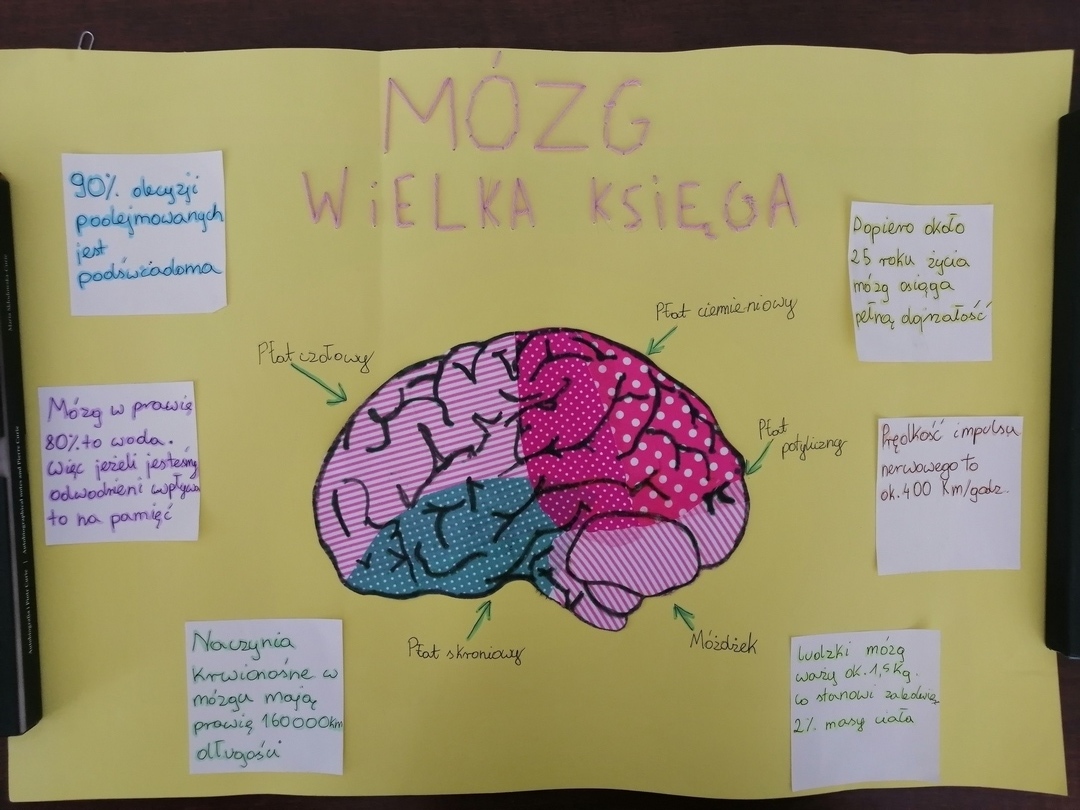 MÓZG
WIELKA KSIĘGA
90% decyzji
podejmowanych
jest
podświadoma
Mózg w prawię
80% to woda.
więc jeżeli jesteśmy
odwodnieni wpływa
to na pamięć
Naczynia
krwionośne w
mózgu mają
prawię 160000km
długości
Płat czołowy
Płat ciemieniowy
Płat
potyliczny
Płat skroniowy
Móżdżek
Dopiero około
25 roku życia
mózg osiąga
pełną dojrzałość
Prędkość impulsu
nerwowego to
ok. 400 Km/godz.
ludzki mózg
waży ok. 1,5 Kg.
co stanowi zaledwie
2% masy ciała